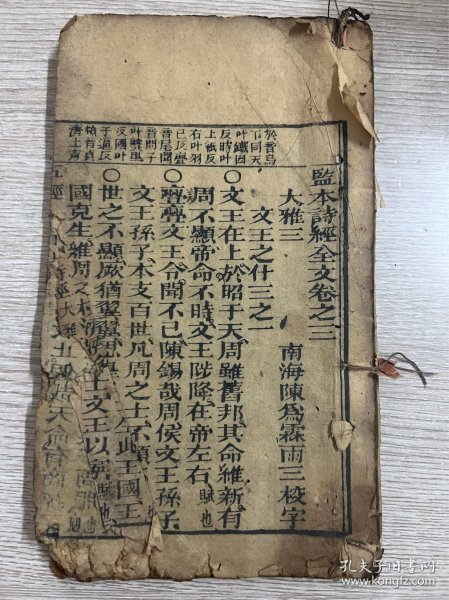 於音烏
下同天
叶鐵因
反時叶
上紙反
右叶羽
已反亹
音尾聞
音問子
叶奬里
反國叶
于逼反
楨音貞
濟上聲
監本詩經全文卷之三
大雅三 南海陳為霖雨三校字
文王之什三之一
〇文王在上於昭于天周雖舊邦其命維新有
周不顯帝命不時文王陟降在帝左右 賦也
〇亹亹文王令聞不已陳錫哉周侯文王孫子
文王孫子本支百世凡周之士不顯
〇世之不顯厥猶翼翼思 生此王國王
國克生維周之 士文王以寧 賦也
詩經 大雅
孔夫子旧书网
www.kongfz.com